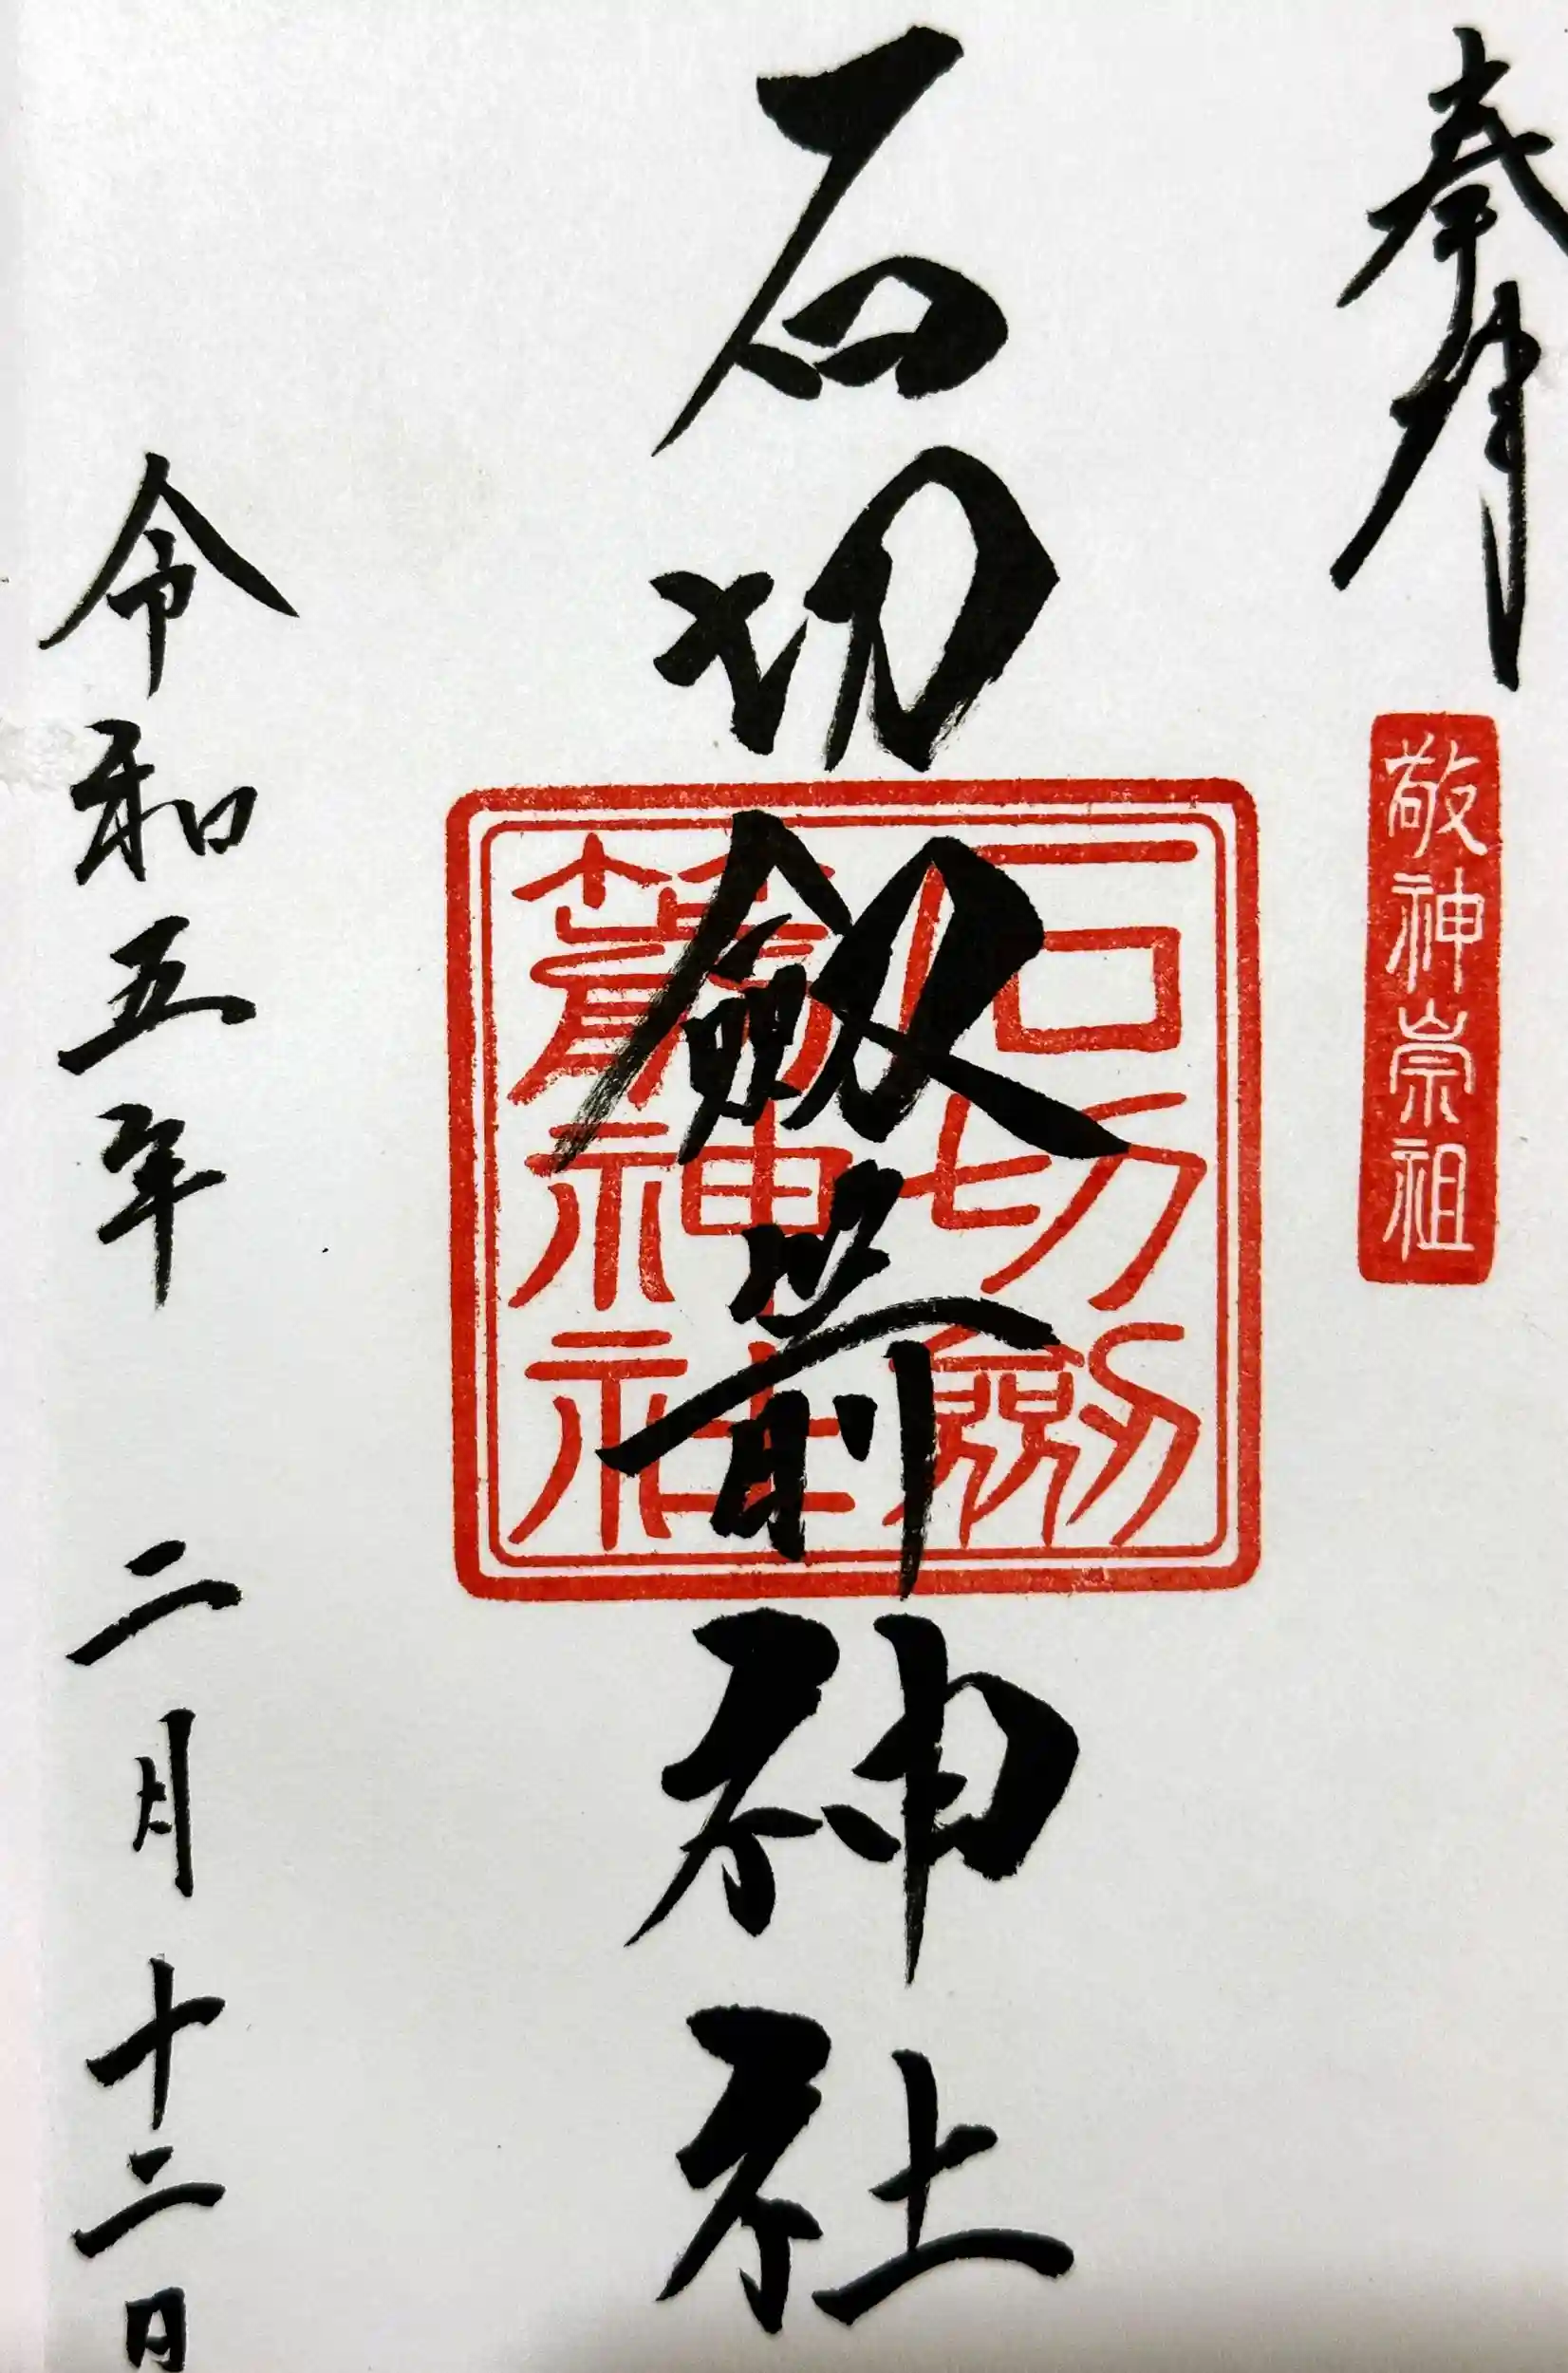 奉拝
敬神崇祖
石切劔箭神社
石切劔
箭神社
令和五年 二月十二日